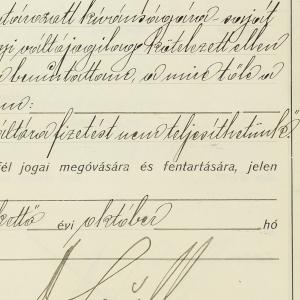 utánzatt kívánságára saját
gi váltójogilag kötelezett ellen
bemutattam, a mire tőle a
m:
váltóra fizetést nem teljesíthetünk."
fél jogai megóvására és fentartására, jelen
kettő évi október hó